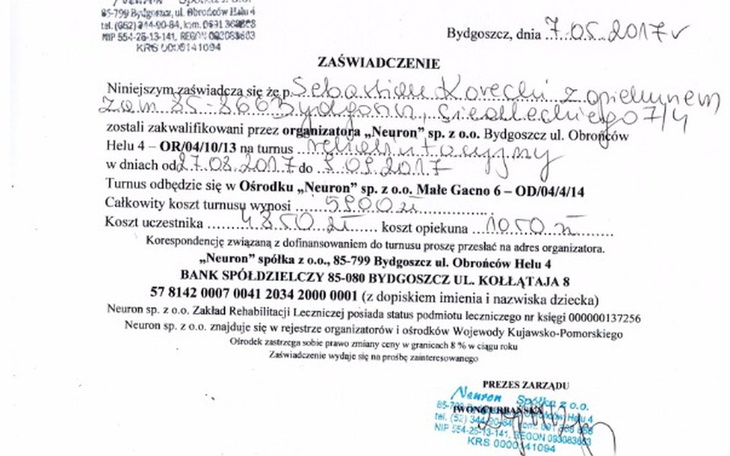 Neuron Spółka z o.o.
85-799 Bydgoszcz, ul. Obrońców Helu 4
tel. (052) 344-90-84, kom. 0691 368868
NIP 554-25-13-141, REGON 093083663
KRS 0000141094
Bydgoszcz, dnia 7.05.2017 r
ZAŚWIADCZENIE
Niniejszym zaświadcza się że p. Sebastian Korecki z opiekunem
zam 85-866 Bydgoszcz, Siedleckiego 7/4
zostali zakwalifikowani przez organizatora „Neuron” sp. z o.o. Bydgoszcz ul. Obrońców
Helu 4 – OR/04/10/13 na turnus rehabilitacyjny
w dniach od 27.08.2017 do 9.09.2017
Turnus odbędzie się w Ośrodku „Neuron” sp. z o.o. Małe Gacno 6 – OD/04/4/14
Całkowity koszt turnusu wynosi 5900 zł
Koszt uczestnika 4850 zł koszt opiekuna 1050 zł
Korespondencję związaną z dofinansowaniem do turnusu proszę przesłać na adres organizatora.
„Neuron” spółka z o.o., 85-799 Bydgoszcz ul. Obrońców Helu 4
BANK SPÓŁDZIELCZY 85-080 BYDGOSZCZ UL. KOŁŁĄTAJA 8
57 8142 0007 0041 2034 2000 0001 (z dopiskiem imienia i nazwiska dziecka)
Neuron sp. z o.o. Zakład Rehabilitacji Leczniczej posiada status podmiotu leczniczego nr księgi 000000137256
Neuron sp. z o.o. znajduje się w rejestrze organizatorów i ośrodków Wojewody Kujawsko-Pomorskiego
Ośrodek zastrzega sobie prawo zmiany ceny w granicach 8 % w ciągu roku
Zaświadczenie wydaje się na prośbę zainteresowanego
PREZES ZARZĄDU
Neuron Spółka z o.o.
85-799 Bydgoszcz, ul. Obrońców Helu 4
IWONA URBAŃSKA
tel. (52) 344-90-84, kom.
NIP 554-25-13-141, REGON 093083663
KRS 0000141094